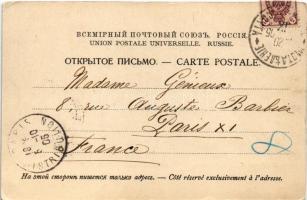 ВСЕМІРНЫЙ ПОЧТОВЫЙ СОЮЗЪ. РОССІЯ.
UNION POSTALE UNIVERSELLE. RUSSIE.
ОТКРЫТОЕ ПИСЬМО. — CARTE POSTALE.
Madame Génieux
8 rue Auguste Barbier
Paris XI
France
На этой сторонѣ пишется только адресъ. — Côté réservé exclusivement à l'adresse.
PARIS